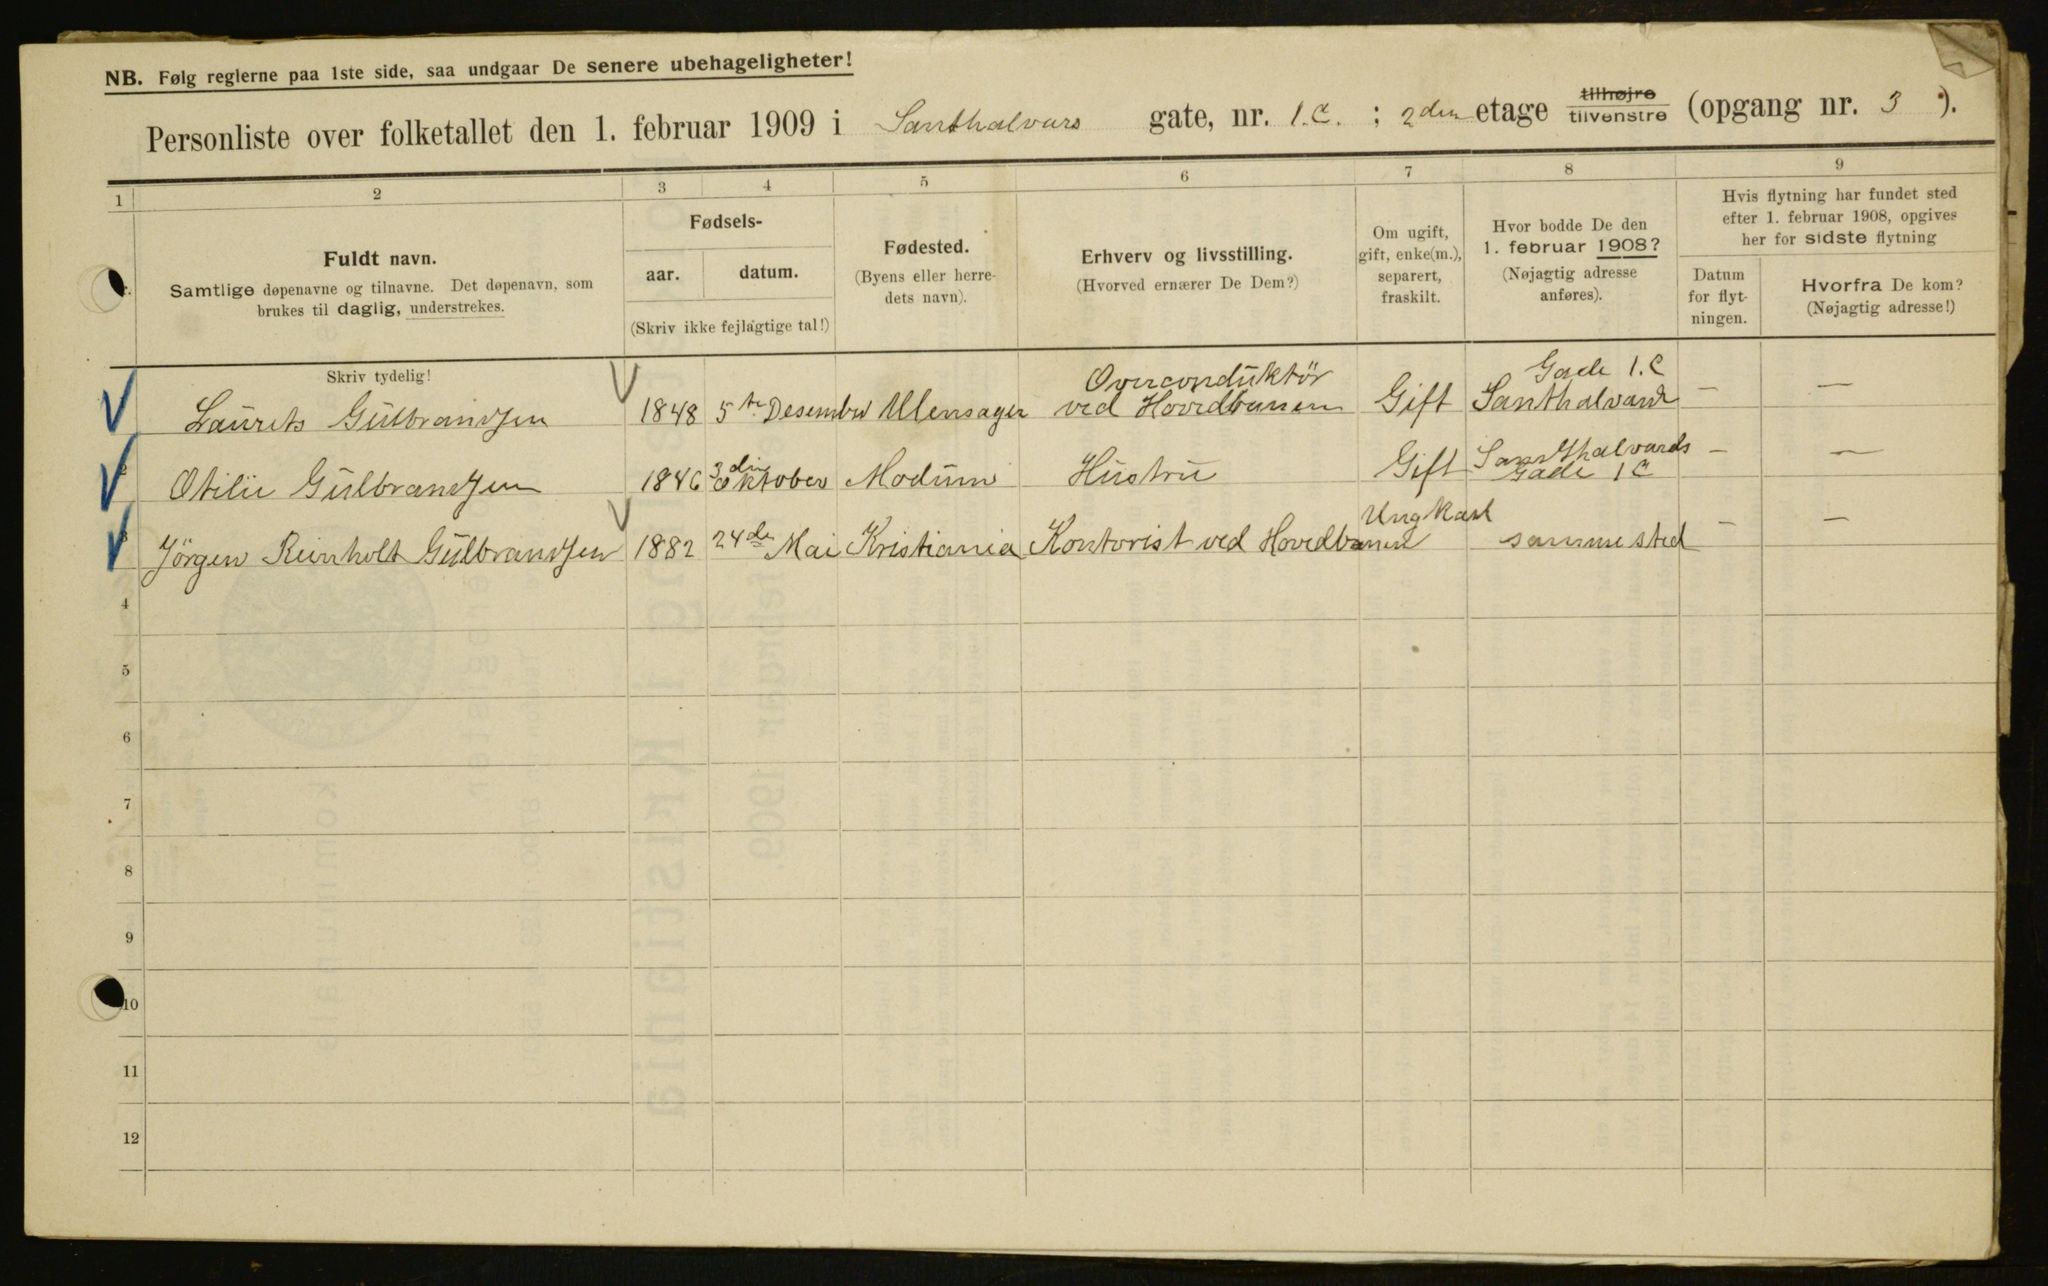 NB. Følg reglerne paa 1ste side, saa undgaar De senere ubehageligheter!
Personliste over folketallet den 1. februar 1909 i Santhalvars gate, nr. 1.C. ; 2den etage tilhøjre tilvenstre (opgang nr. 3 ).
1 2 3 4 5 6 7 8 9
Fuldt navn.
Samtlige døpenavne og tilnavne. Det døpenavn, som
brukes til daglig, understrekes.
Fødsels-
aar. datum.
(Skriv ikke fejlagtige tal!)
Fødested.
(Byens eller herre-
dets navn).
Erhverv og livsstilling.
(Hvorved ernærer De Dem?)
Om ugift,
gift, enke(m.),
separert,
fraskilt.
Hvor bodde De den
1. februar 1908?
(Nøjagtig adresse
anføres).
Hvis flytning har fundet sted
efter 1. februar 1908, opgives
her for sidste flytning
Datum
for flyt-
ningen.
Hvorfra De kom?
(Nøjagtig adresse!)
Skriv tydelig!
Overconduktör Gade 1.C
Laurits Gulbrandsen 1848 5te Desember Ullensager ved Hovedbanen Gift Santhalvard — —
2 Otilie Gulbrandsen 1846 3die Oktober Modum Hustru Gift Santhalvards Gade 1C — —
3 Jörgen Reinholt Gulbrandsen 1882 24de Mai Kristiania Kontorist ved Hovedbanen Ungkarl sammested — —
4
5
6
7
8
9
10
11
12